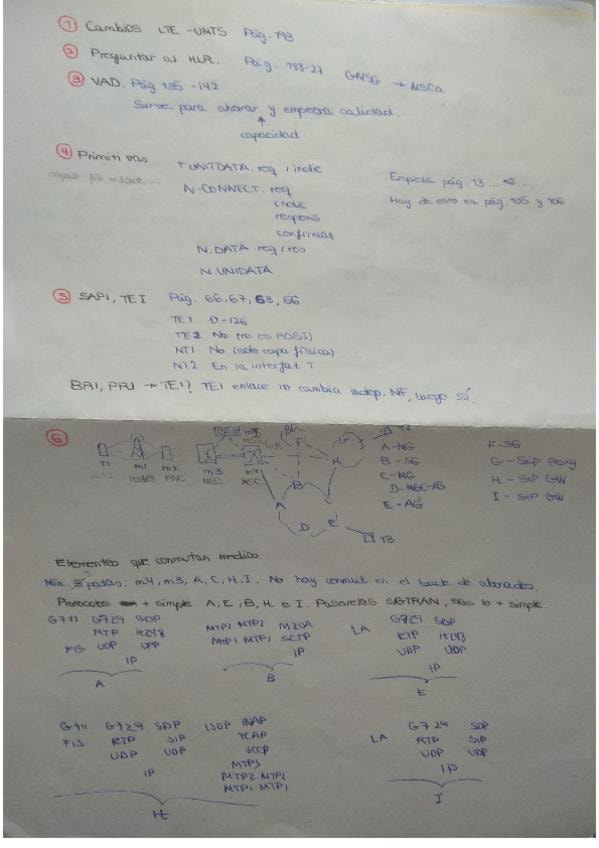 ① Cambios LTE - UMTS Pág. 193
② Preguntar al HLR. Pág. 188-27 → MSCa
③ VAD. Pág 135 - 142
Sirve para ahorrar y empeora calidad.
↑
capacidad
④ Primitivas
T UNITDATA. req / indic
N-CONNECT. req
indic
respons
confirmat
Empieza pág. 13
Hay de esto en pág. 105 y 106
N. DATA. req
N. UNIDATA
⑤ SAPI, TEI Pág. 66, 67, 63, 66
TE1 0-126
TE2 No (no es RDSI)
NT1 No (solo capa física)
NT2 En la interfaz T
BRI, PRI → TEI? TEI enlace no cambia indep. NF, luego sí.
⑥
T1 m1 m2 m3 m4
RNC MSC MGC
F H G T2
A B C D E T3
A - NG F - SG
B - SG G - SIP Proxy
C - MG H - SIP GW
D - MGC-AG I - SIP GW
E - AG
Elementos que conmutan medios.
Min. 2 patas: m4, m3, A, C, H, I. No hay conmut en el bucle de abonados.
Protocolos + simple A, E, B, H e I. Pasarelas SIGTRAN, SGs lo + simple.
G711 G729 SDP
RTP H248
FIS UDP UDP
IP
A
MTP2 MTP2 M2UA
MTP1 MTP1 SCTP
IP
B
G729 SDP
LA RTP H248
UDP UDP
IP
E
G711 G729 SDP ISUP INAP
FIS RTP SIP TCAP
UDP UDP SCCP
IP MTP3
MTP2 MTP2
MTP1 MTP1
H
G729 SDP
LA RTP SIP
UDP UDP
IP
I